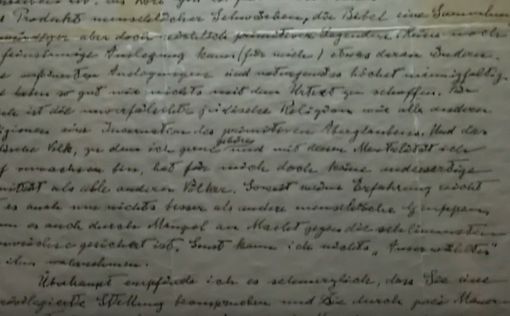 Produkt menschlicher Schwächen, die Bibel eine Sammlung
aber doch reichlich primitiver Legenden. Keine noch
feinsinnige Auslegung kann (für mich) etwas daran ändern.
Auslegungen sind naturgemäss höchst mannigfaltig
haben so gut wie nichts mit dem Urtext zu schaffen. Für
ist die unverfälschte jüdische Religion wie alle anderen
eine Incarnation des primitiven Aberglaubens. Und das
Volk, zu dem ich gerne gehöre und mit dessen Mentalität ich
verwachsen bin, hat für mich doch keine andersartige
als alle anderen Völker. Soweit meine Erfahrung reicht
es auch um nichts besser als andere menschliche Gruppen
es auch durch Mangel an Macht gegen die schlimmsten
gesichert ist. Sonst kann ich nichts „Auserwähltes“
ihm wahrnehmen.
Überhaupt empfinde ich es schmerzlich, dass Sie eine
Stellung beanspruchen und Sie durch zwei Mauern